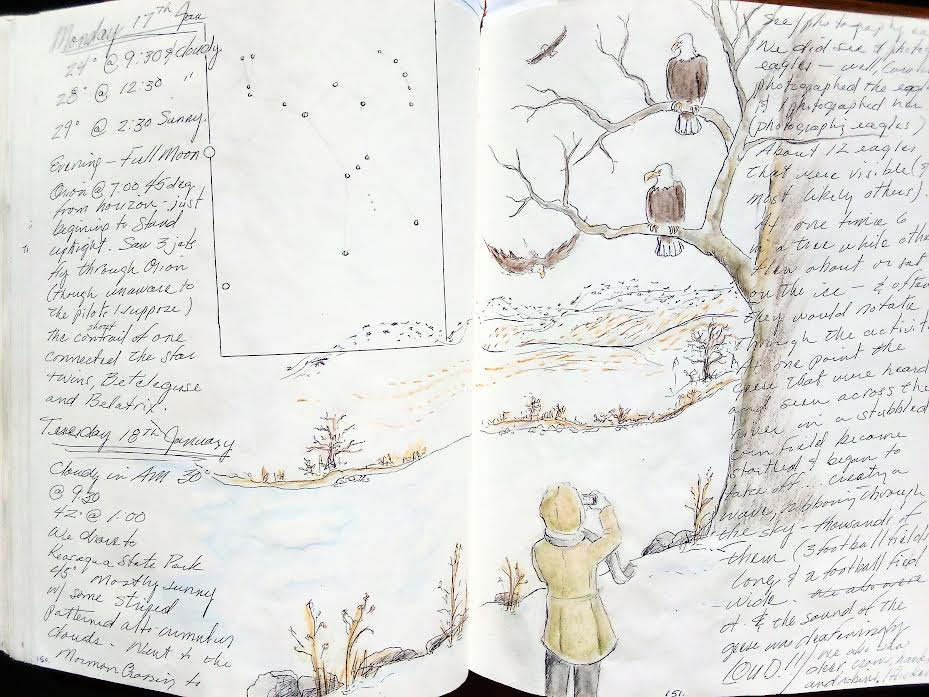 Monday 17th Jan
24° @ 9:30 & cloudy
28° @ 12:30 "
29° @ 2:30 Sunny.
Evening - Full Moon
Orion @ 7:00 45 deg.
from horizon - just
begining to Stand
upright. Saw 3 jets
fly through Orion
(though unaware to
the pilots I suppoze)
the short contrail of one
connected the star
twins, Beteleguse
and Belatrix.
Tuesday 18th January
Cloudy in AM 30°
@ 9:30
42° @ 1:00
We drove to
Keosaqua State Park
45° Mostly sunny
w/ some striped
patterned alto-cumulus
clouds. Went to the
Mormon Crossing to
150.
See/photography
We did see & photog
eagles - well, Caro
photographed the eagle
& I photographed her
(photographing eagles)
About 12 eagles
that were visible (&
most likely others).
At one time 6
in a tree while othe
flew about or sat
on the ice - & often
they would rotate
through the activit
one point the
geese that were heard
and seen across the
river in a stubbled
corn field became
startled & began to
take off... creating a
wave, ribboning through
the sky - thousands of
them (3 football fields
long & a football field
wide.
of & the sound of the
geese was deafeningly
LOUD!!) We also saw
deer, crows,
and robins,
151.